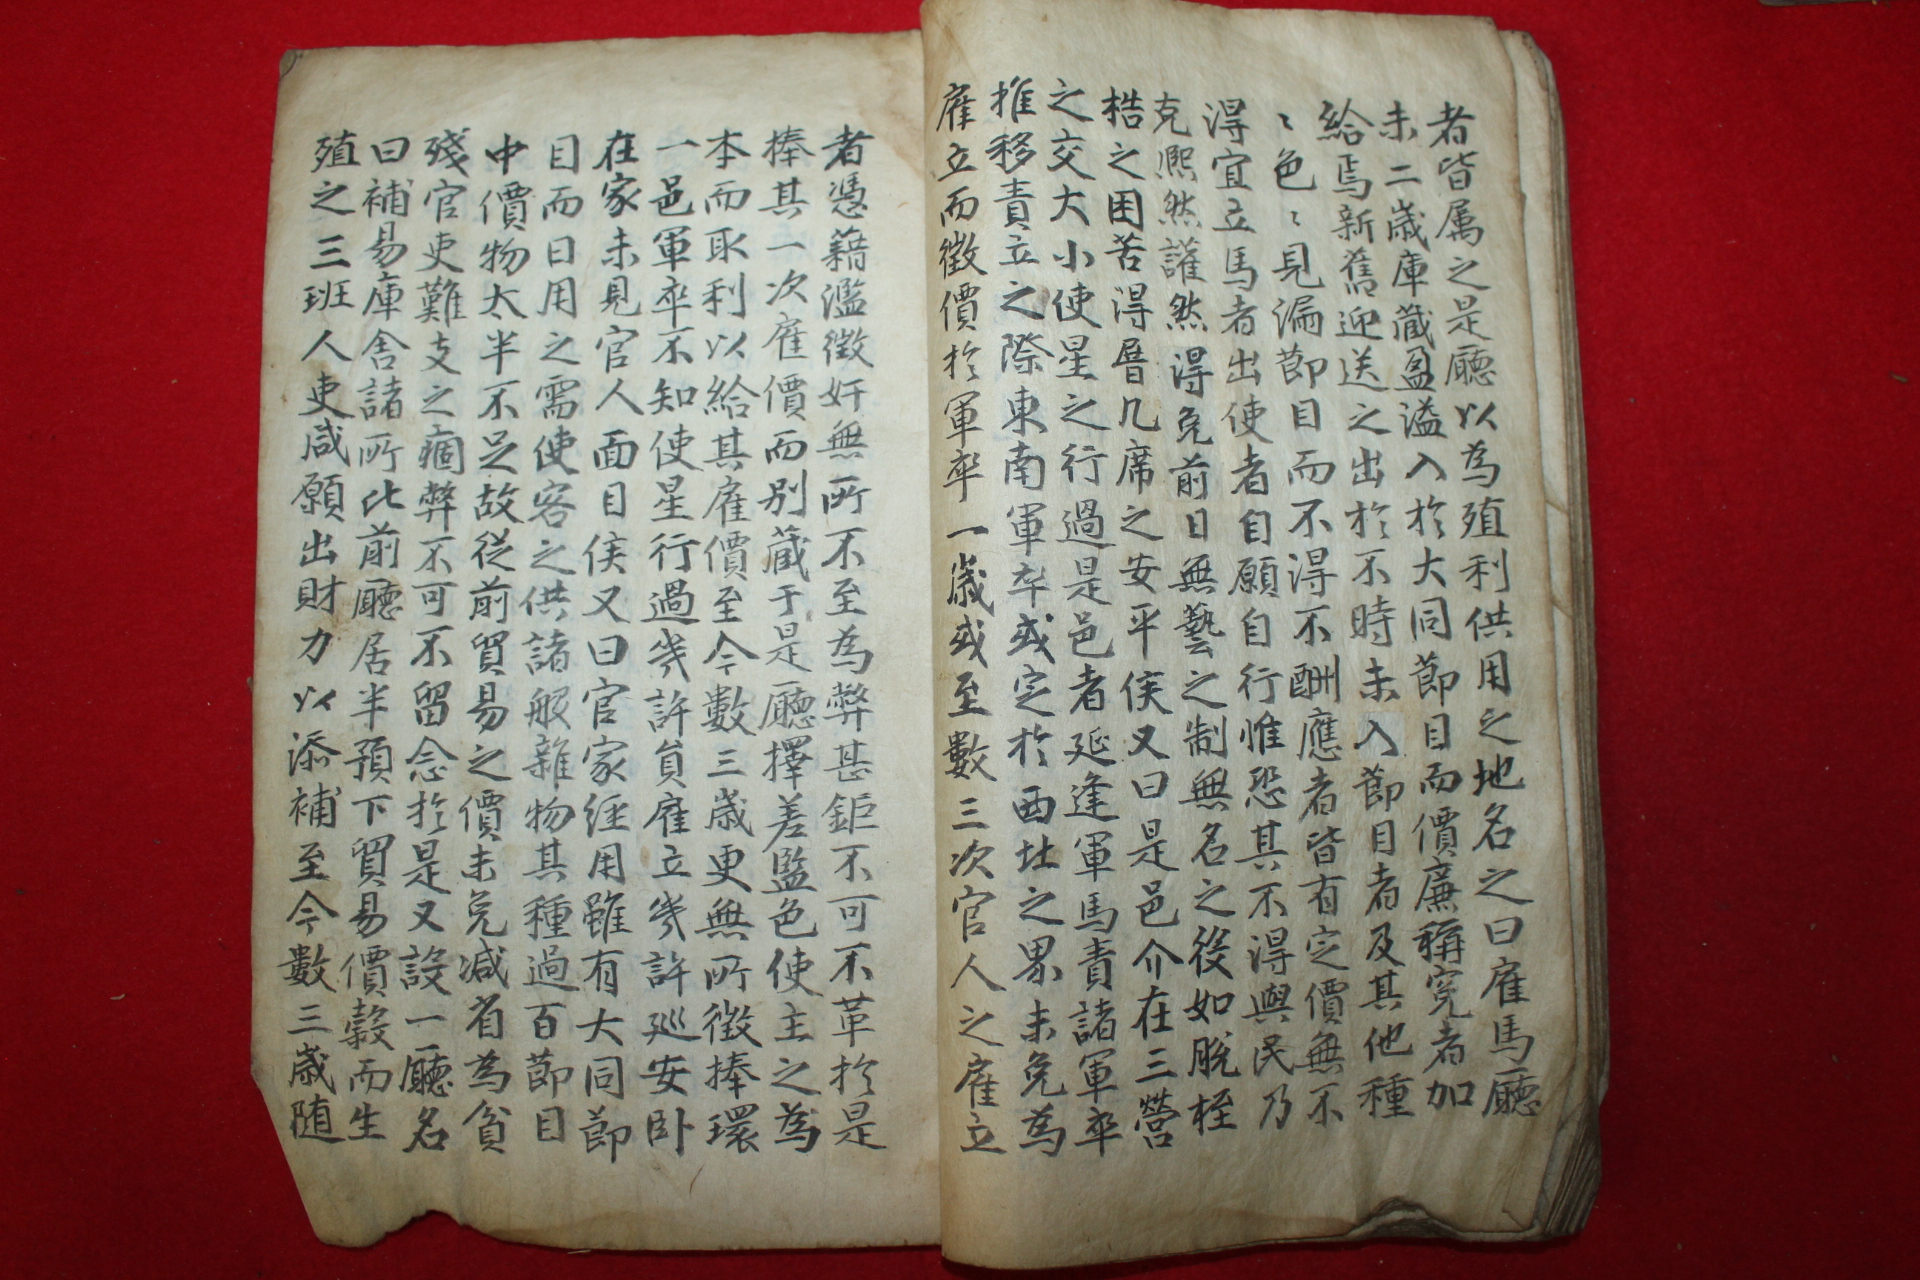 者皆属之是廳以為殖利供用之地名之曰雇馬廳
未二歲庫藏盈溢入於大同節目而價廉稱寃者加
給焉新舊迎送之出於不時未入節目者及其他種
〻色〻見漏節目而不得不酬應者皆有定價無不
得宜立馬者出使者自願自行惟恐其不得與民乃
克熙然然謹然得免前日無藝之制無名之役如脫桎
梏之困苦得晷几席之安平侯又曰是邑介在三營
之交大小使星之行過是邑者延逢軍馬責諸軍卒
推移責立之際東南軍卒或定於西北之界未免為
雇立而徵價於軍卒一歲或至數三次官人之雇立
者憑藉濫徵奸無所不至為弊甚鉅不可不革於是
捧其一次雇價而別藏于是廳擇差監色使主之為
本而取利以給其雇價至今數三歲更無所徵捧環
一邑軍卒不知使星行過幾許負雇立幾許廵安卧
在家未見官人面目侯又曰官家經用雖有大同節
目而日用之需使客之供諸般雜物其種過百節目
中價物太半不足故從前貿易之價未免减省為貧
殘官吏難支之痼弊不可不留念於是又設一廳名
曰補易庫舍諸所比前廳居半預下貿易價穀而生
殖之三班人吏咸願出財力以添補至今數三歲随